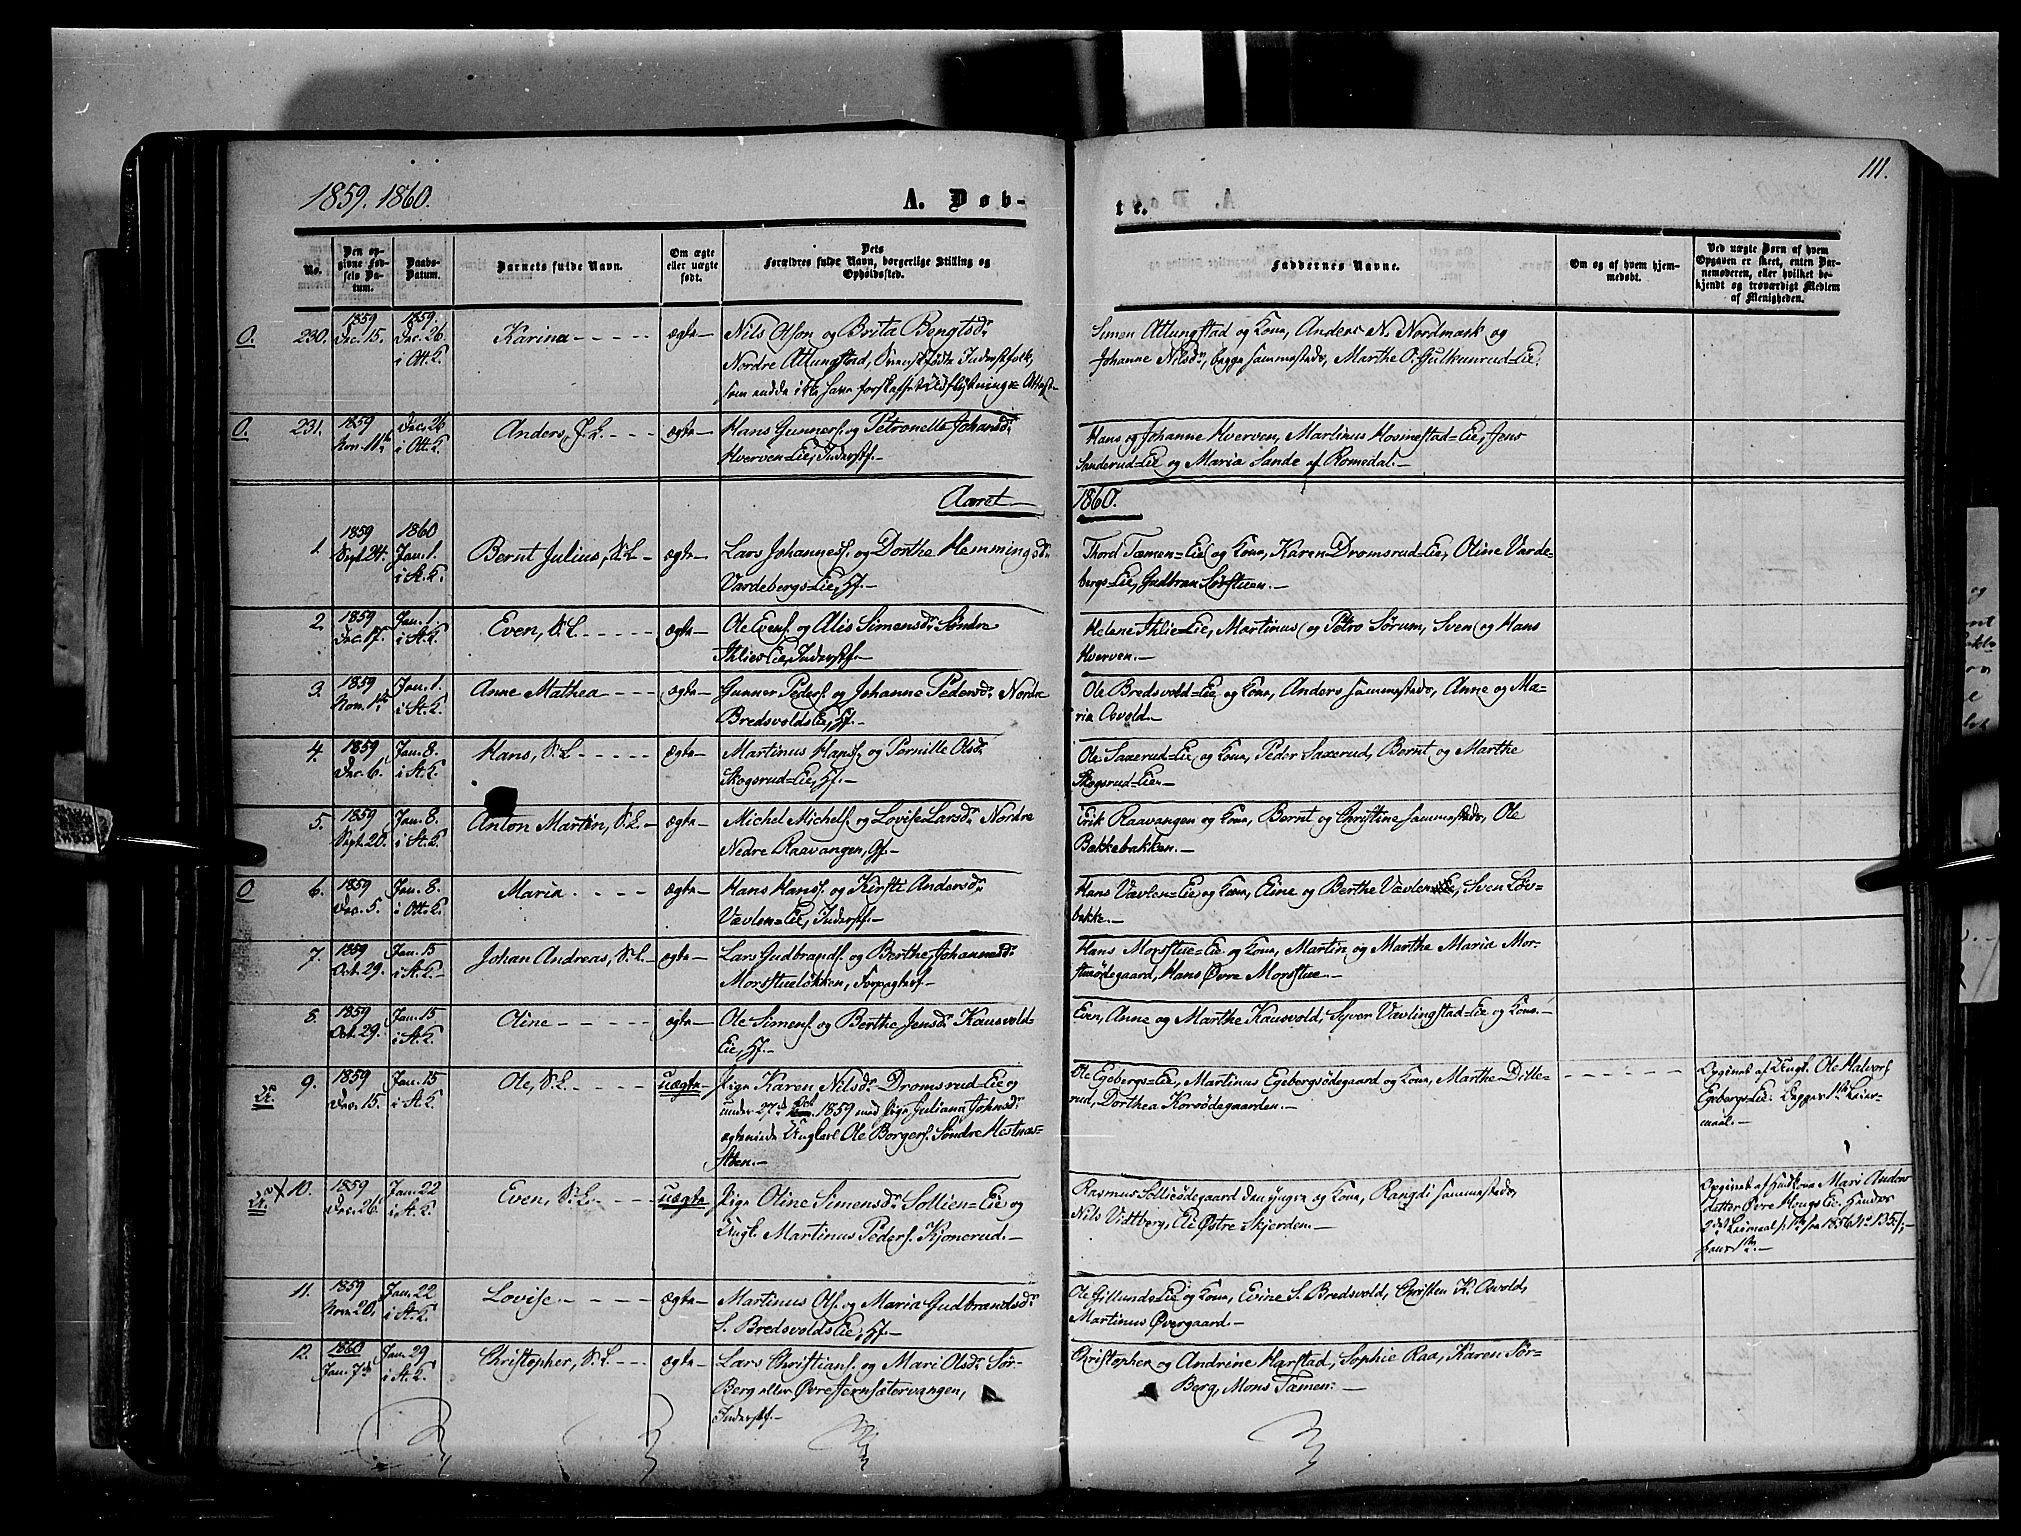 1859. 1860.
A. Døb-
te.
111.
No.
Den op-
givne Fød-
sels Da-
tum.
Daabs-
Datum.
Barnets fulde Navn.
Om ægte
eller uægte
født.
Dets
Forældres fulde Navn, borgerlige Stilling og
Opholdssted.
Faddernes Navne.
Om og af hvem hjem-
medøbt.
Ved uægte Børn af hvem
Opgaven er skeet, enten Bar-
nemoderen, eller hvilket be-
kjendt og troværdigt Medlem
af Menigheden.
O. 230. 1859 Dec. 15. 1859. Dec. 26 i Ott. K. Karina ægte
Nils Olson og Brita Bengtsdr
Nordre Atlungstad, Inderstfolk,
som endda ikke have forskaffet Attest
Simen Atlungstad og Kone, Anders N. Nordmark og
Johanne Nilsdr, begge sammesteds, Marthe O. Gulkunrud-Eie.
O. 231. 1859 Nov. 11te Dec. 26 i Ott. K. Anders ægte
Hans Gunners. og Petronelle Johansdr
Hverven-Eie, Inderstf.
Hans og Johanne Hverven, Martinus Hovinstad-Eie, Jens
Sanderud-Eie og Maria Sande af Romedal.
Aaret 1860.
1. 1859 Sept. 24. 1860 Jan. 1. i St. K. Bernt Julius, S. L. ægte
Lars Johannes. og Dorthe Hemmingsdr
Vardebergs-Eie, Hf.
Thord Tømen-Eie og Kone, Karen Dromsrud-Eie, Oline Varde-
bergs-Eie, Gudbran Sørstuen.
2. 1859 Dec. 17. Jan. 1. i St. K. Even, S. L. ægte
Ole Evens. og Alis Simensdr Søndre
Thlies Eie, Inderstf.
Helene Thlie-Eie, Martinus og Petro Sørum, Sven og Hans
Hverven.
3. 1859 Nov. 1ste Jan. 1. i St. K. Anne Mathea ægte
Gunner Peders. og Johanne Pedersdr Nordre
Bredsvolds Eie, Hf.
Ole Bredsvold-Eie og Kone, Anders sammesteds, Anne og Ma-
ria Osvold.
4. 1859 Dec. 6. Jan. 8. i St. K. Hans, S. L. ægte
Martinus Hans. og Pernille Olsdr
Skogsrud-Eie, Hf.
Ole Saxerud-Eie og Kone, Peder Saxerud, Bernt og Marthe
Skogsrud-Eie.
5. 1859 Sept. 20. Jan. 8. i St. K. Anton Martin, S. L. ægte
Michel Michels. og Lovise Larsdr Nordre
Nedre Raavangen, Gf.
Erik Raavangen og Kone, Bernt og Christine sammesteds, Ole
Bakkebakken.
O 6. 1859 Dec. 5. Jan. 8. i Ott. K. Maria ægte
Hans Hans. og Kirsti Andersdr
Vævlen-Eie, Inderstf.
Hans Vævlen-Eie og Kone, Eline og Berthe Vævlen-Eie, Sven Løv-
bakke.
7. 1859 Oct. 29. Jan. 15 i St. K. Johan Andreas, S. L. ægte
Lars Gudbrands. og Berthe Johannesdr
Morstueløkken, Forpagterf.
Hans Morstue-Eie og Kone, Martin og Marthe Maria Mor-
stuødegaard, Hans Øvre Morstue.
8. 1859 Oct. 29. Jan. 15 i St. K. Oline ægte
Ole Simens. og Berthe Jensdr Kausvold-
Eie, Hf.
Even, Anne og Marthe Kausvold, Syver Vævlingstad-Eie og Kone.
9. 1859 Dec. 15. Jan. 15 i St. K. Ole, S. L. uægte
Pige Karen Nilsdr Dromsrud-Eie og
under 27de Oct. 1859 med Pige Juliana Johnsdr
ægteviede Ungkarl Ole Borgers. Søndre Hestnæs-
Steen.
Ole Egebergs-Eie, Martinus Egebergsødegaard og Kone, Marthe Dille-
rud, Dorthea Korsødegaarden.
Opgivet af Ungk. Ole Halvors.
Egebergs-Eie. Begges 1ste Leier-
maal.
10. 1859 Dec. 26. Jan. 22 i St. K. Even, S. L. uægte
Pige Oline Simensdr Sollien-Eie og
Ungk. Martinus Peders. Kjonerud.
Rasmus Sollieødegaard den yngre og Kone, Rangdi sammesteds,
Nils Vidtberg, Eli Østre Skjerden.
Opgivet af Mari Anders-
datter Øvre Hougs Eie.
2det Leiermaal, fra 1856 No 135.
hans 1ste.
11. 1859 Nov. 20. Jan. 22 i St. K. Lovise ægte
Martinus Ols. og Maria Gudbrandsdr
S. Bredsvolds Eie, Hf.
Ole Gillunds-Eie og Kone, Eline S. Bredsvold, Christen K. Osvold,
Martinus Øvergaard.
12. 1860 Jan. 7de Jan. 29 i St. K. Christopher, S. L. ægte
Lars Christians. og Mari Olsdr Sør-
Berg eller Øvre Jernsætervangen,
Inderstf.
Christopher og Andrine Harstad, Sophie Raa, Karen Sør-
Berg, Mons Tømen.